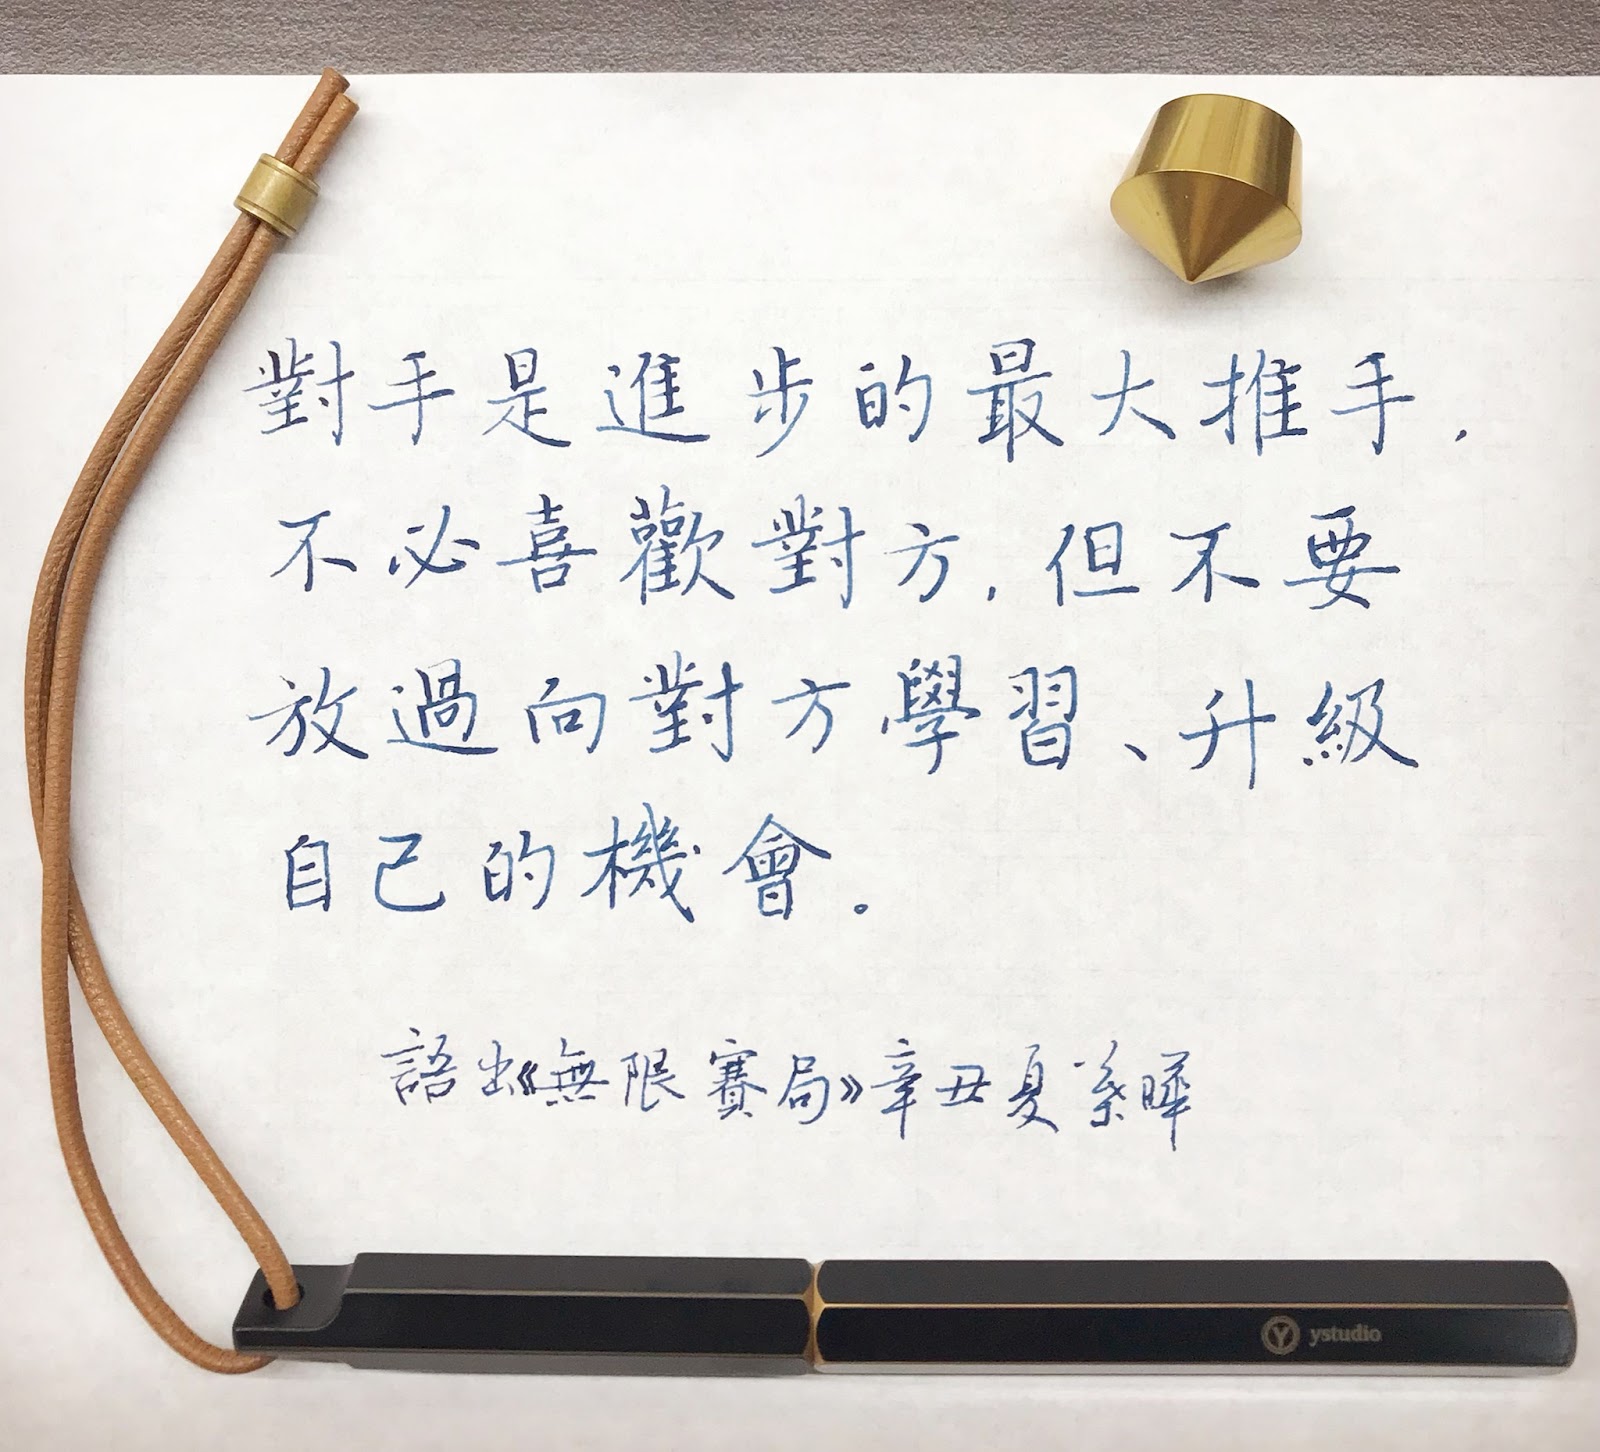 對手是進步的最大推手，
不必喜歡對方，但不要
放過向對方學習、升級
自己的機會。
語出《無限賽局》辛丑夏 葉曄
ystudio